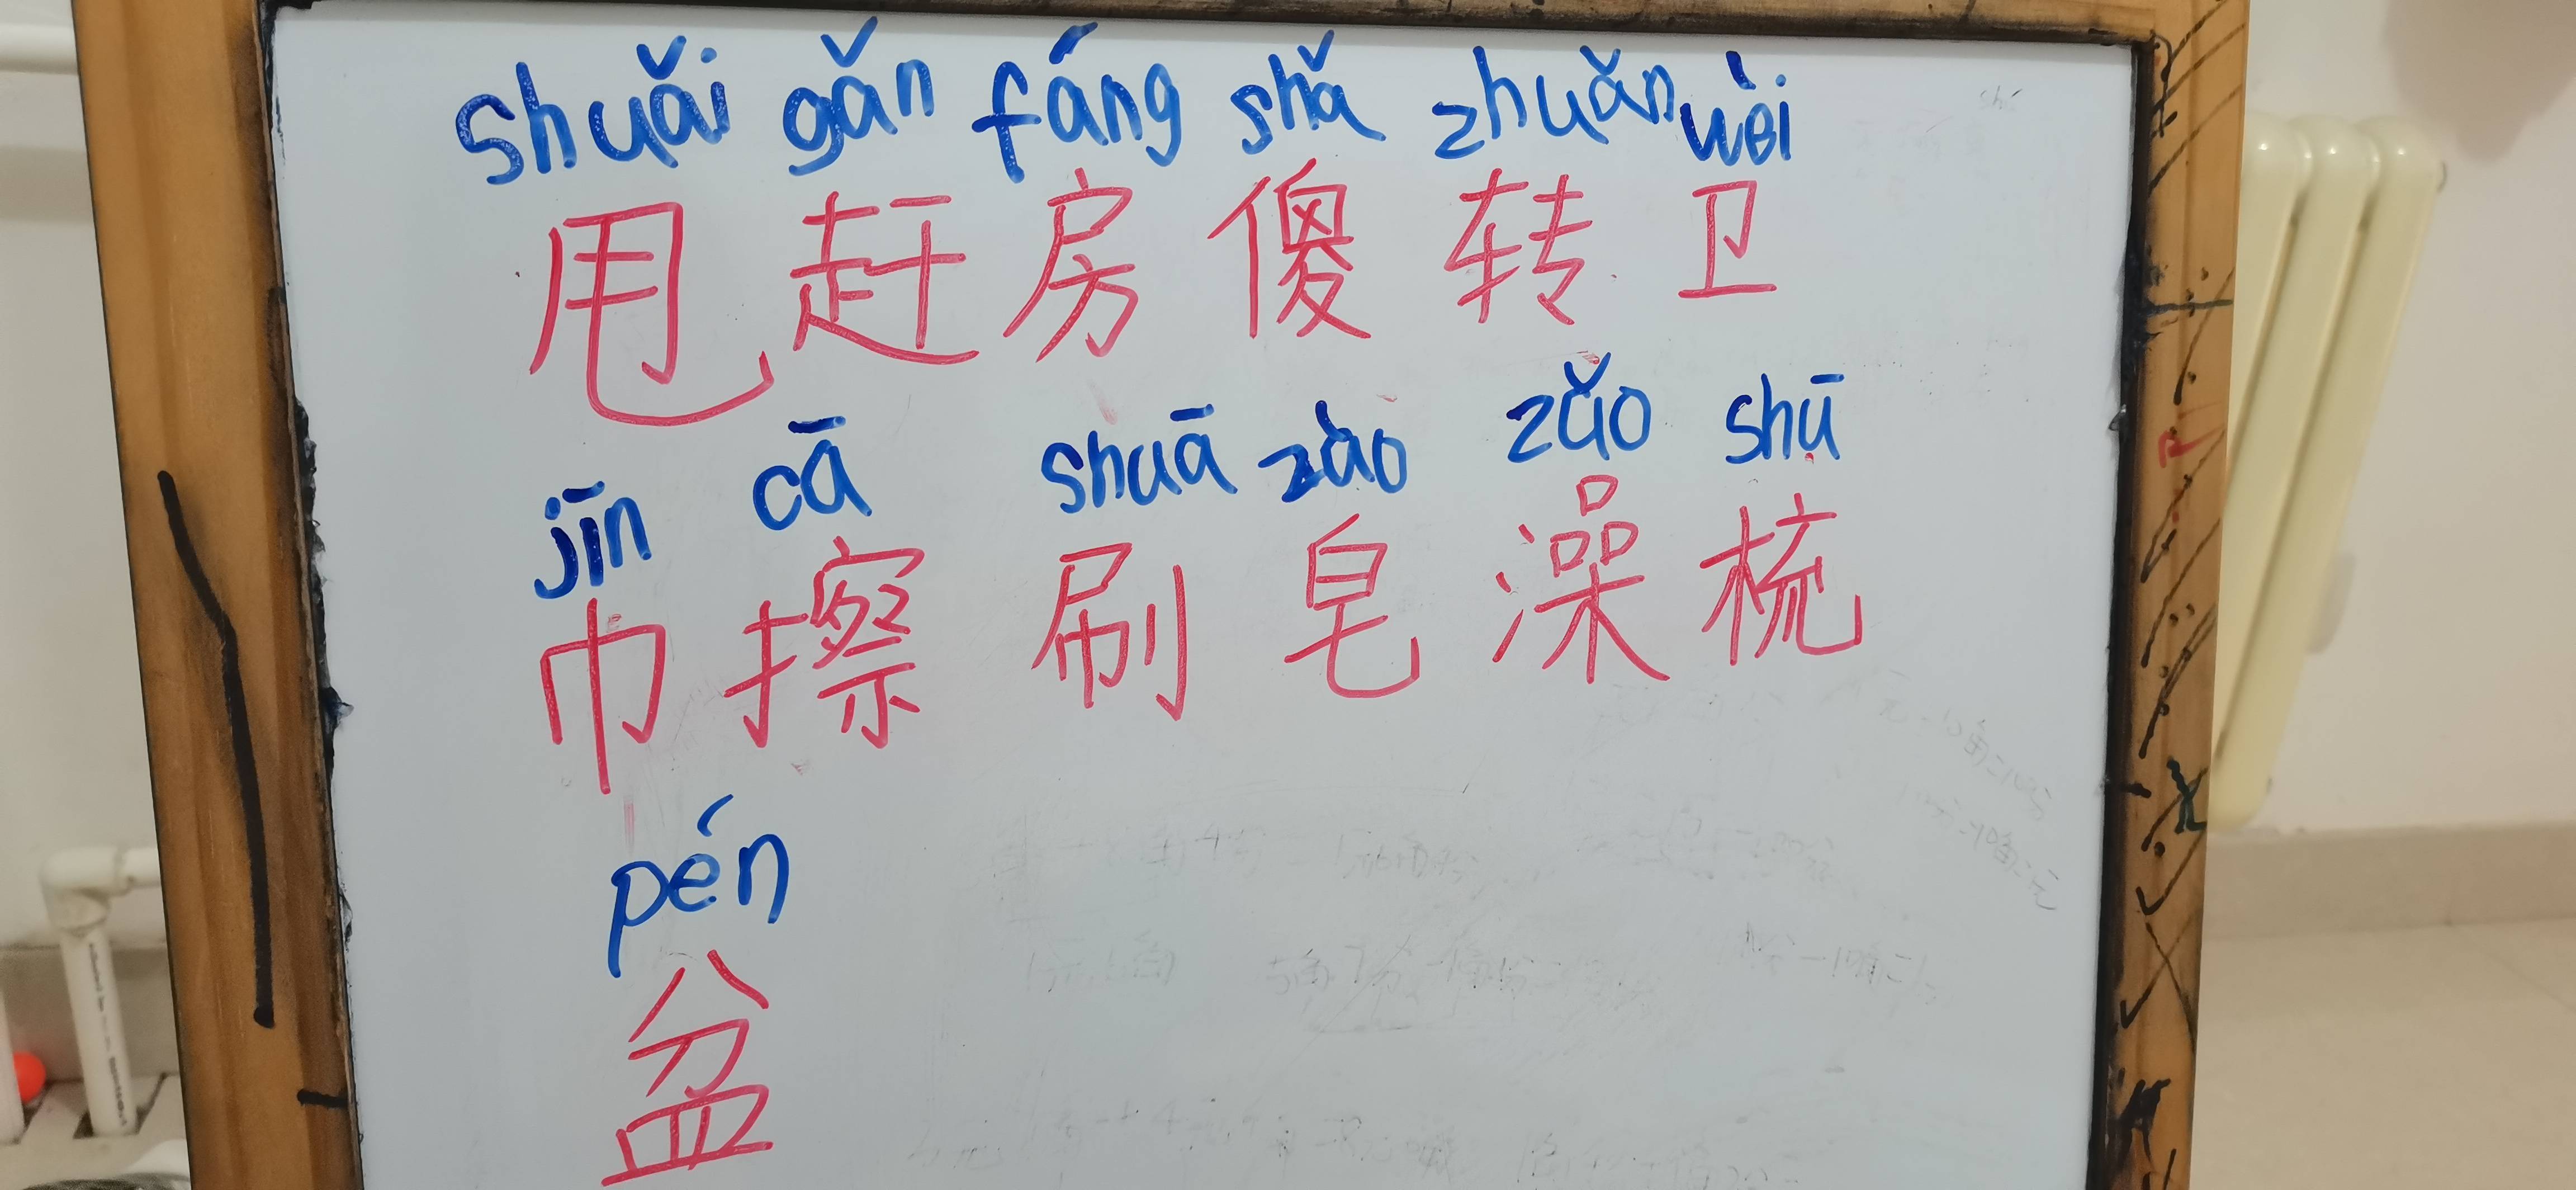 shuǎi gǎn fáng shǎ zhuǎn wèi
甩 赶 房 傻 转 卫
jīn cā shuā zào zǎo shū
巾 擦 刷 皂 澡 梳
pén
盆